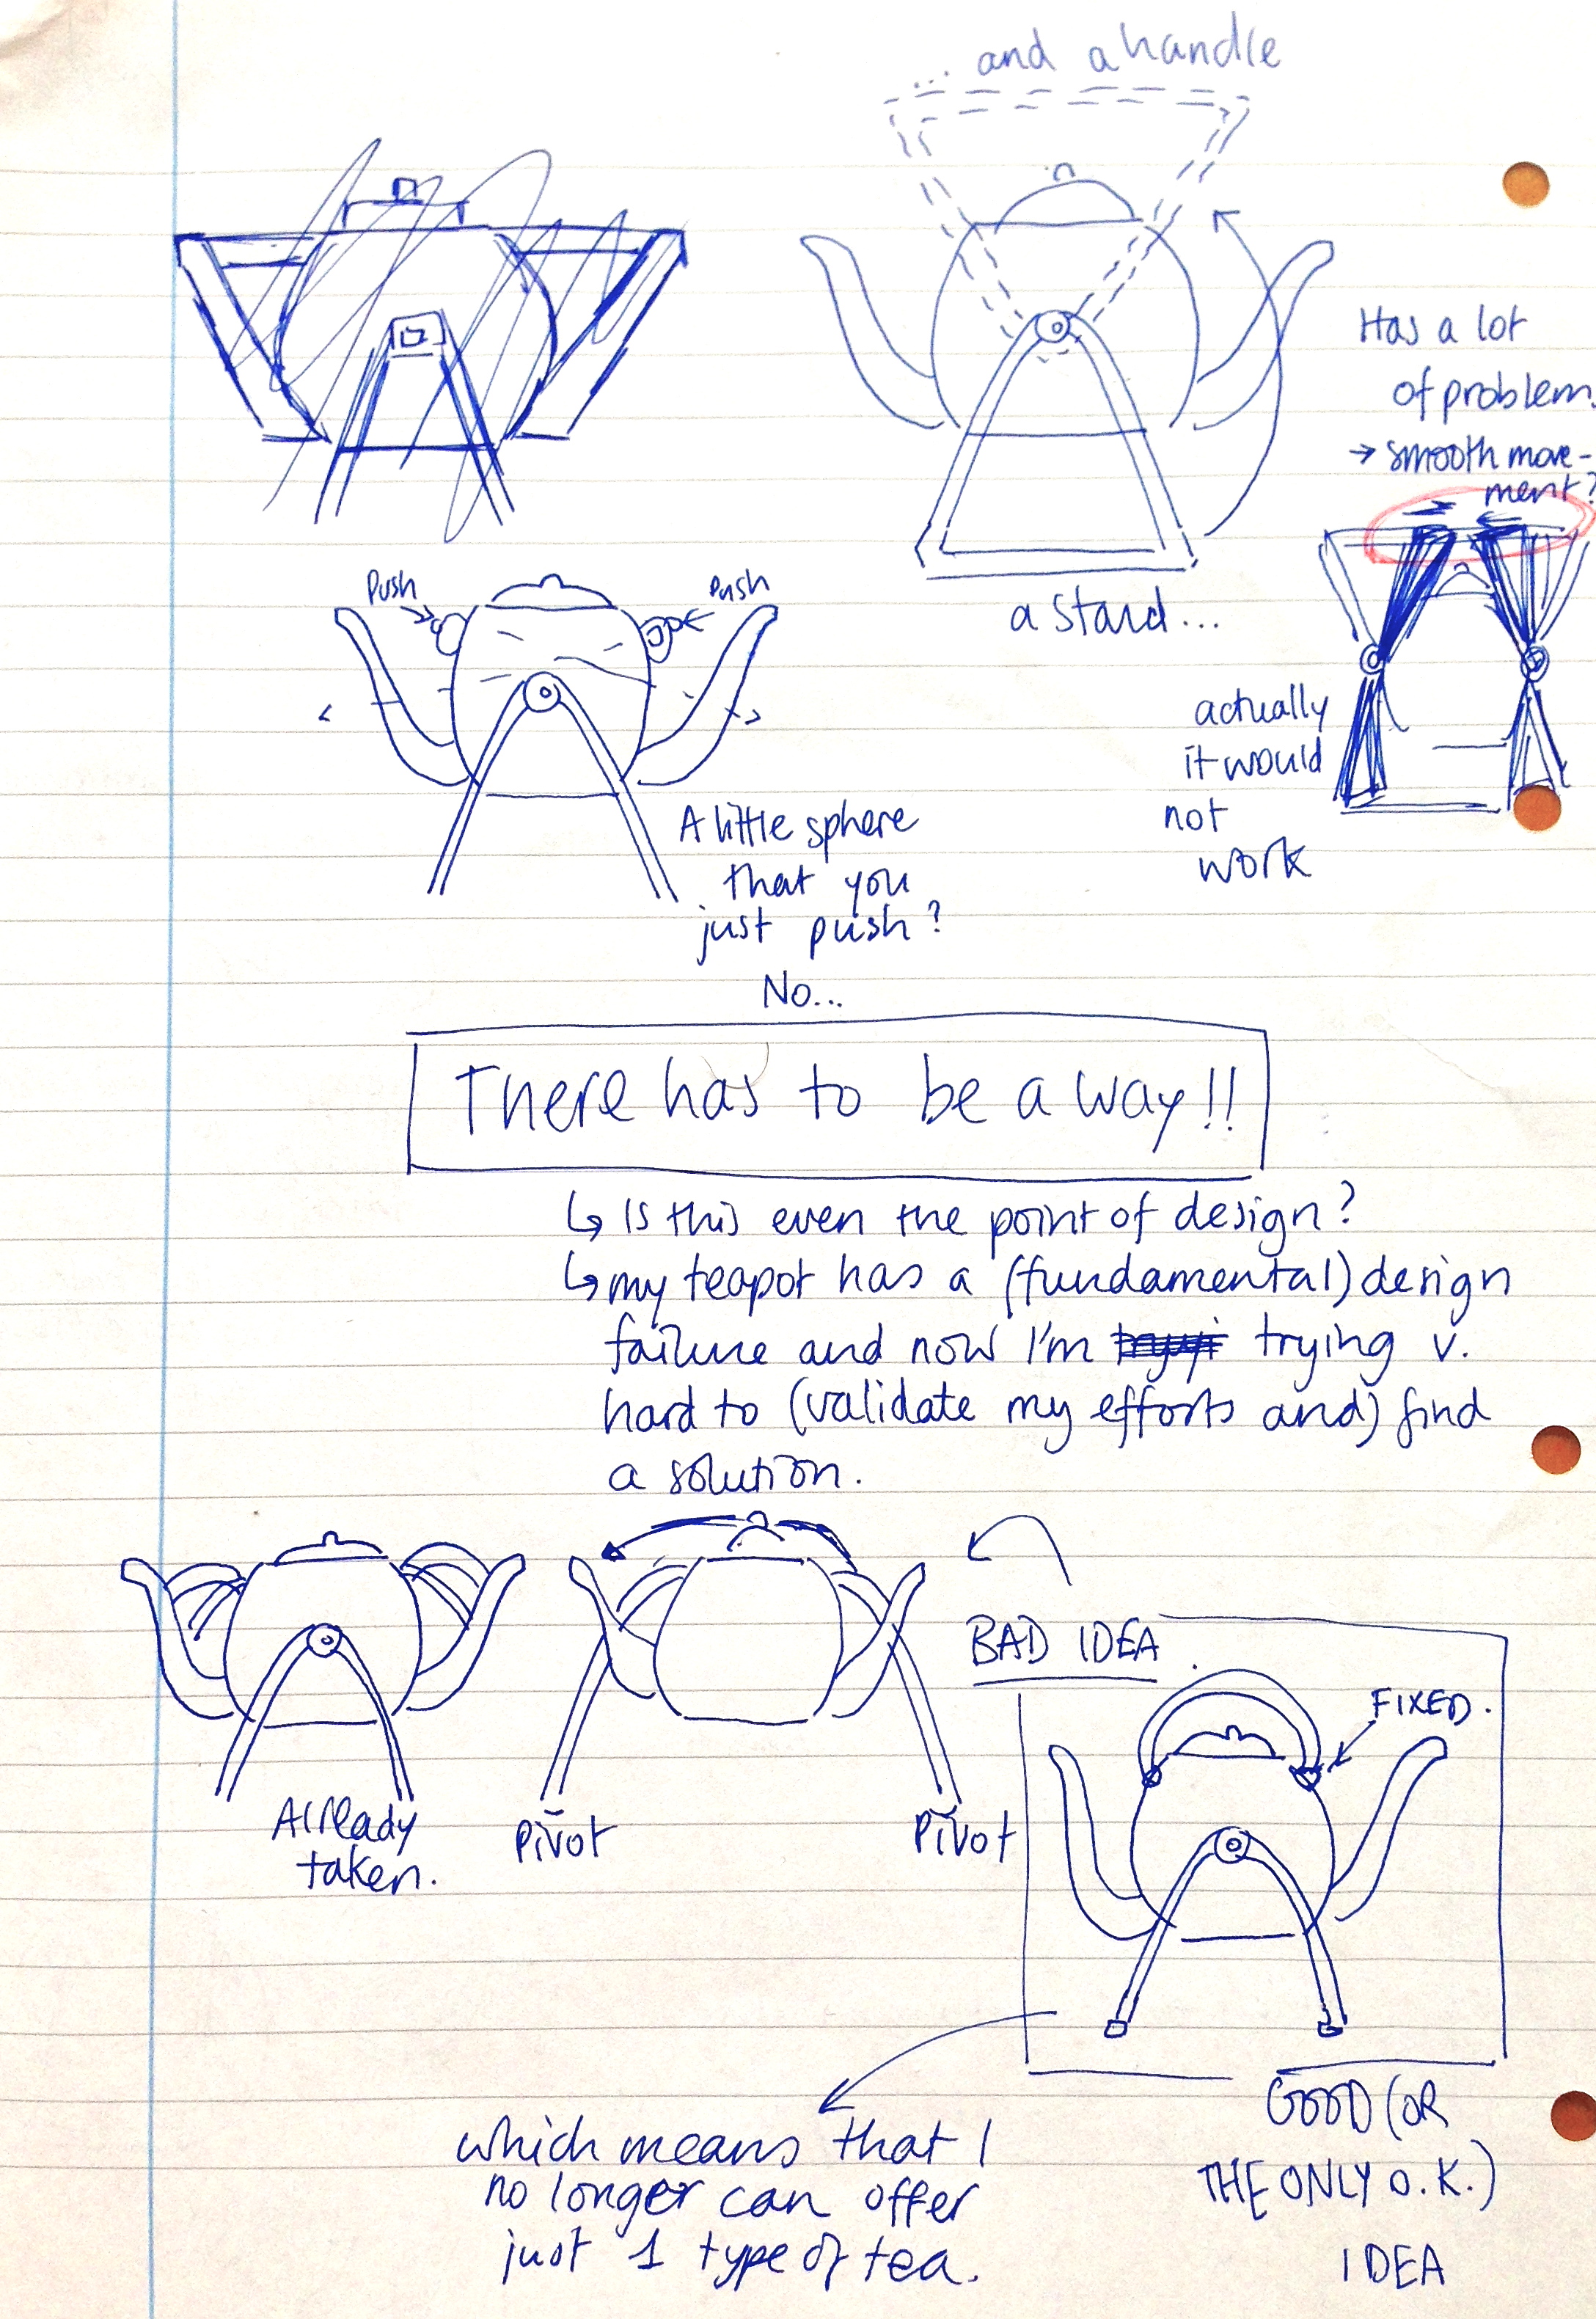 ... and a handle
Has a lot
of problem.
→ smooth move-
ment?
a stand...
Push
push
actually
it would
not
work
A little sphere
that you
just push?
No...
There has to be a way!!
↳ Is this even the point of design?
↳ my teapot has a (fundamental) design
failure and now I'm trying v.
hard to (validate my efforts and) find
a solution.
BAD IDEA
FIXED.
Already
taken.
Pivot
Pivot
GOOD (OR
THE ONLY O.K.)
IDEA
which means that I
no longer can offer
just 1 type of tea.